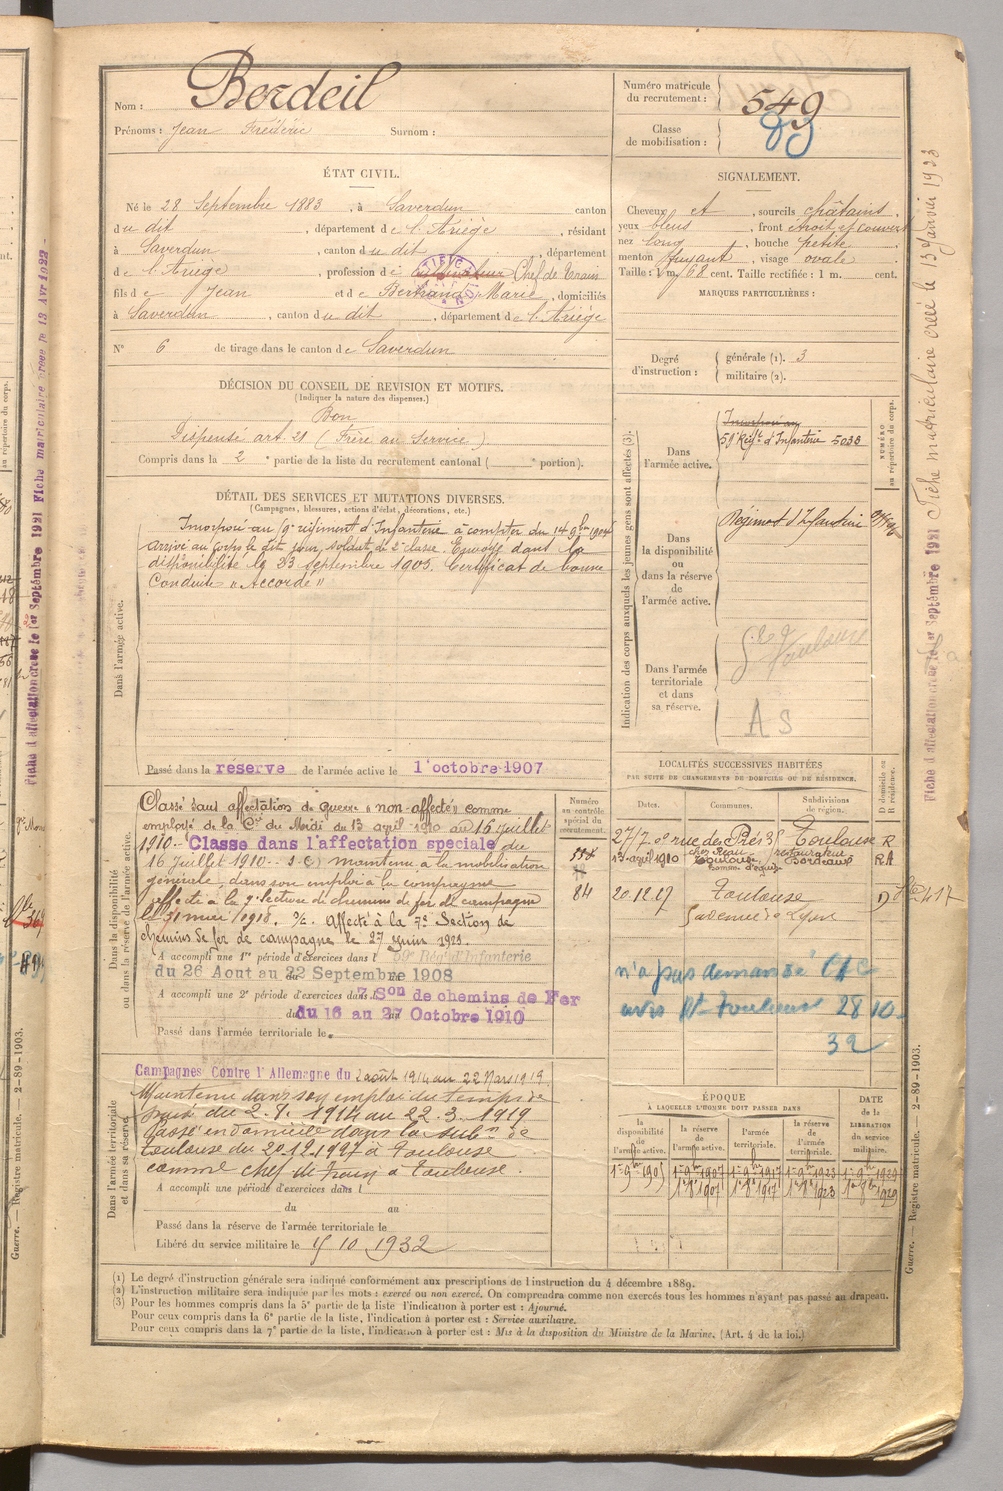 Nom : Bordeil
Prénoms : Jean Frédéric Surnom :
Numéro matricule du recrutement : 549
Classe de mobilisation : 83
ÉTAT CIVIL.
Né le 28 Septembre 1883, à Saverdun canton
du dit, département de l'Ariège, résidant
à Saverdun, canton du dit, département
de l'Ariège, profession de cultivateur Chef de Train
fils de Jean et de Bertrand Marie, domiciliés
à Saverdun, canton du dit, département de l'Ariège
N° 6 de tirage dans le canton de Saverdun
SIGNALEMENT.
Cheveux et, sourcils châtains.
yeux bleus, front étroit et couvert
nez long, bouche petite
menton fuyant, visage ovale
Taille : 1 m. 68 cent. Taille rectifiée : 1 m. cent.
MARQUES PARTICULIÈRES :
Degré d'instruction : générale (1). 3
militaire (2).
DÉCISION DU CONSEIL DE REVISION ET MOTIFS.
(Indiquer la nature des dispenses.)
Bon
Dispensé art. 21 (Frère au Service)
Compris dans la 2e partie de la liste du recrutement cantonal ( portion).
DÉTAIL DES SERVICES ET MUTATIONS DIVERSES.
(Campagnes, blessures, actions d'éclat, décorations, etc.)
Dans l'armée active.
Incorporé au régiment d'Infanterie à compter du 14 9bre 1904
arrivé au corps le dit jour, soldat de 2e classe. Envoyé dans la
disponibilité le 23 Septembre 1905. Certificat de bonne
Conduite « Accordé »
Passé dans la réserve de l'armée active le 1er octobre 1907
Indication des corps auxquels les jeunes gens sont affectés (3).
NUMÉRO au répertoire du corps.
Dans l'armée active.
Incorporé au
59e Régt d'Infanterie 5033
Dans la disponibilité ou dans la réserve de l'armée active.
Régiment d'Infanterie
Dans l'armée territoriale et dans sa réserve.
Toulouse
A S
LOCALITÉS SUCCESSIVES HABITÉES
PAR SUITE DE CHANGEMENTS DE DOMICILE OU DE RÉSIDENCE.
Dates. Communes. Subdivisions de région. D domicile ou R résidence.
rue des Prés Toulouse R
13 avril 1910 Toulouse, Bordeaux R.A
20.12.27 Toulouse D
avenue de Lyon
n'a pas demandé
28 10
32
Dans la disponibilité ou dans la réserve de l'armée active.
Numéro au contrôle spécial du recrutement.
84
Classé sans affectation de guerre « non-affecté » comme
employé de la Cie du Midi du 13 avril 1910 au 16 juillet
1910. Classé dans l'affectation spéciale du
16 juillet 1910. maintenu à la mobilisation
générale, dans son emploi à la compagnie
affecté à la 9e Section de chemins de fer de campagne
le 31 mai 1918. Affecté à la 7e Section de
chemins de fer de campagne le 27 juin 1923.
A accompli une 1re période d'exercices dans l 59e Régt d'Infanterie
du 26 Aout au 22 Septembre 1908
A accompli une 2e période d'exercices dans l 7 Son de chemins de Fer
du 16 au 27 Octobre 1910
Passé dans l'armée territoriale le
Dans l'armée territoriale et dans sa réserve.
Campagnes Contre l'Allemagne du 2 août 1914 au 22 Mars 1919
Maintenu dans son emploi du temps de
paix du 2.8.1914 au 22.3.1919
Passé en domicile dans la subon de
Toulouse du 20.12.1927 à Toulouse
comme chef de train à Toulouse.
A accompli une période d'exercices dans l
du au
Passé dans la réserve de l'armée territoriale le
Libéré du service militaire le 15 10 1932
ÉPOQUE
À LAQUELLE L'HOMME DOIT PASSER DANS
la disponibilité de l'armée active. la réserve de l'armée active. l'armée territoriale. la réserve de l'armée territoriale. DATE de la LIBÉRATION du service militaire.
(1) Le degré d'instruction générale sera indiqué conformément aux prescriptions de l'instruction du 4 décembre 1889.
(2) L'instruction militaire sera indiquée par les mots : exercé ou non exercé. On comprendra comme non exercés tous les hommes n'ayant pas passé au drapeau.
(3) Pour les hommes compris dans la 5e partie de la liste l'indication à porter est : Ajourné.
Pour ceux compris dans la 6e partie de la liste, l'indication à porter est : Service auxiliaire.
Pour ceux compris dans la 7e partie de la liste, l'indication à porter est : Mis à la disposition du Ministre de la Marine. (Art. 4 de la loi.)
Guerre. — Registre matricule. — 2-89-1903.
Fiche d'affectation créée le 1er Septembre 1921 Fiche matriculaire créée le 13 Janvier 1933
Fiche d'affectation créée le 1er Septembre 1921 Fiche matriculaire créée le 13 Avr 1922
Guerre. — Registre matricule. — 2-89-1903.